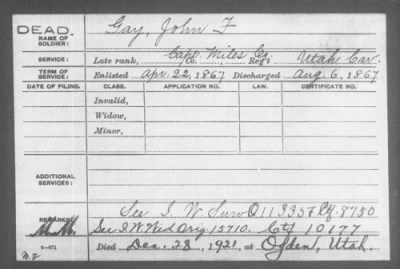 DEAD.
NAME OF SOLDIER: Gay, John F
SERVICE: Late rank, Capt. Miles Co. Co., Reg't Utah Cav.
TERM OF SERVICE: Enlisted Apr. 22, 1867 Discharged Aug. 6, 1867
DATE OF FILING. CLASS. APPLICATION NO. CERTIFICATE NO.
Invalid,
Widow,
Minor,
ADDITIONAL SERVICES:
See I. W. Surv O 11335 8750
REMARKS: See I. W. Wid Orig. 15710. Ctf 10177
M.M.
6-471 Died Dec. 28, 1921, at Ogden, Utah.